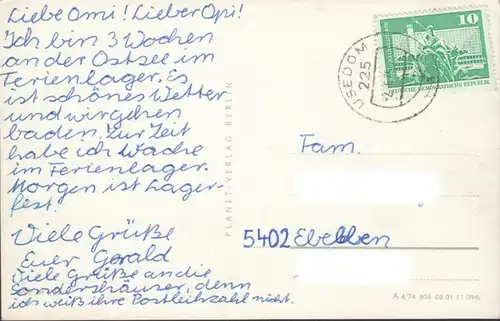 Liebe Omi! Lieber Opi!
Ich bin 3 Wochen
an der Ostsee im
Ferienlager. Es
ist schönes Wetter
und wir gehen
baden. Zur Zeit
habe ich Wache
im Ferienlager.
Morgen ist Lager-
fest.
Viele Grüße
Euer Gerald
Viele Grüße an die
Sondershäuser, denn
ich weiß ihre Postleihzahl nicht.
PLANET-VERLAG BERLIN
USEDOM
225
10
DEMOKRATISCHE REPUBLIK
Fam.
5402 Ebeleben
A 4/74